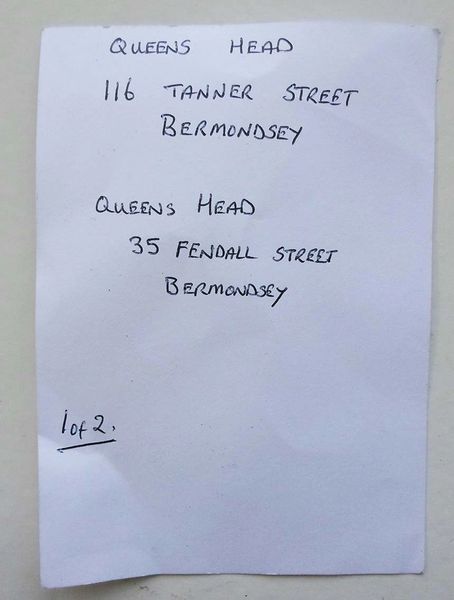 QUEENS HEAD
116 TANNER STREET
BERMONDSEY
QUEENS HEAD
35 FENDALL STREET
BERMONDSEY
1 of 2.